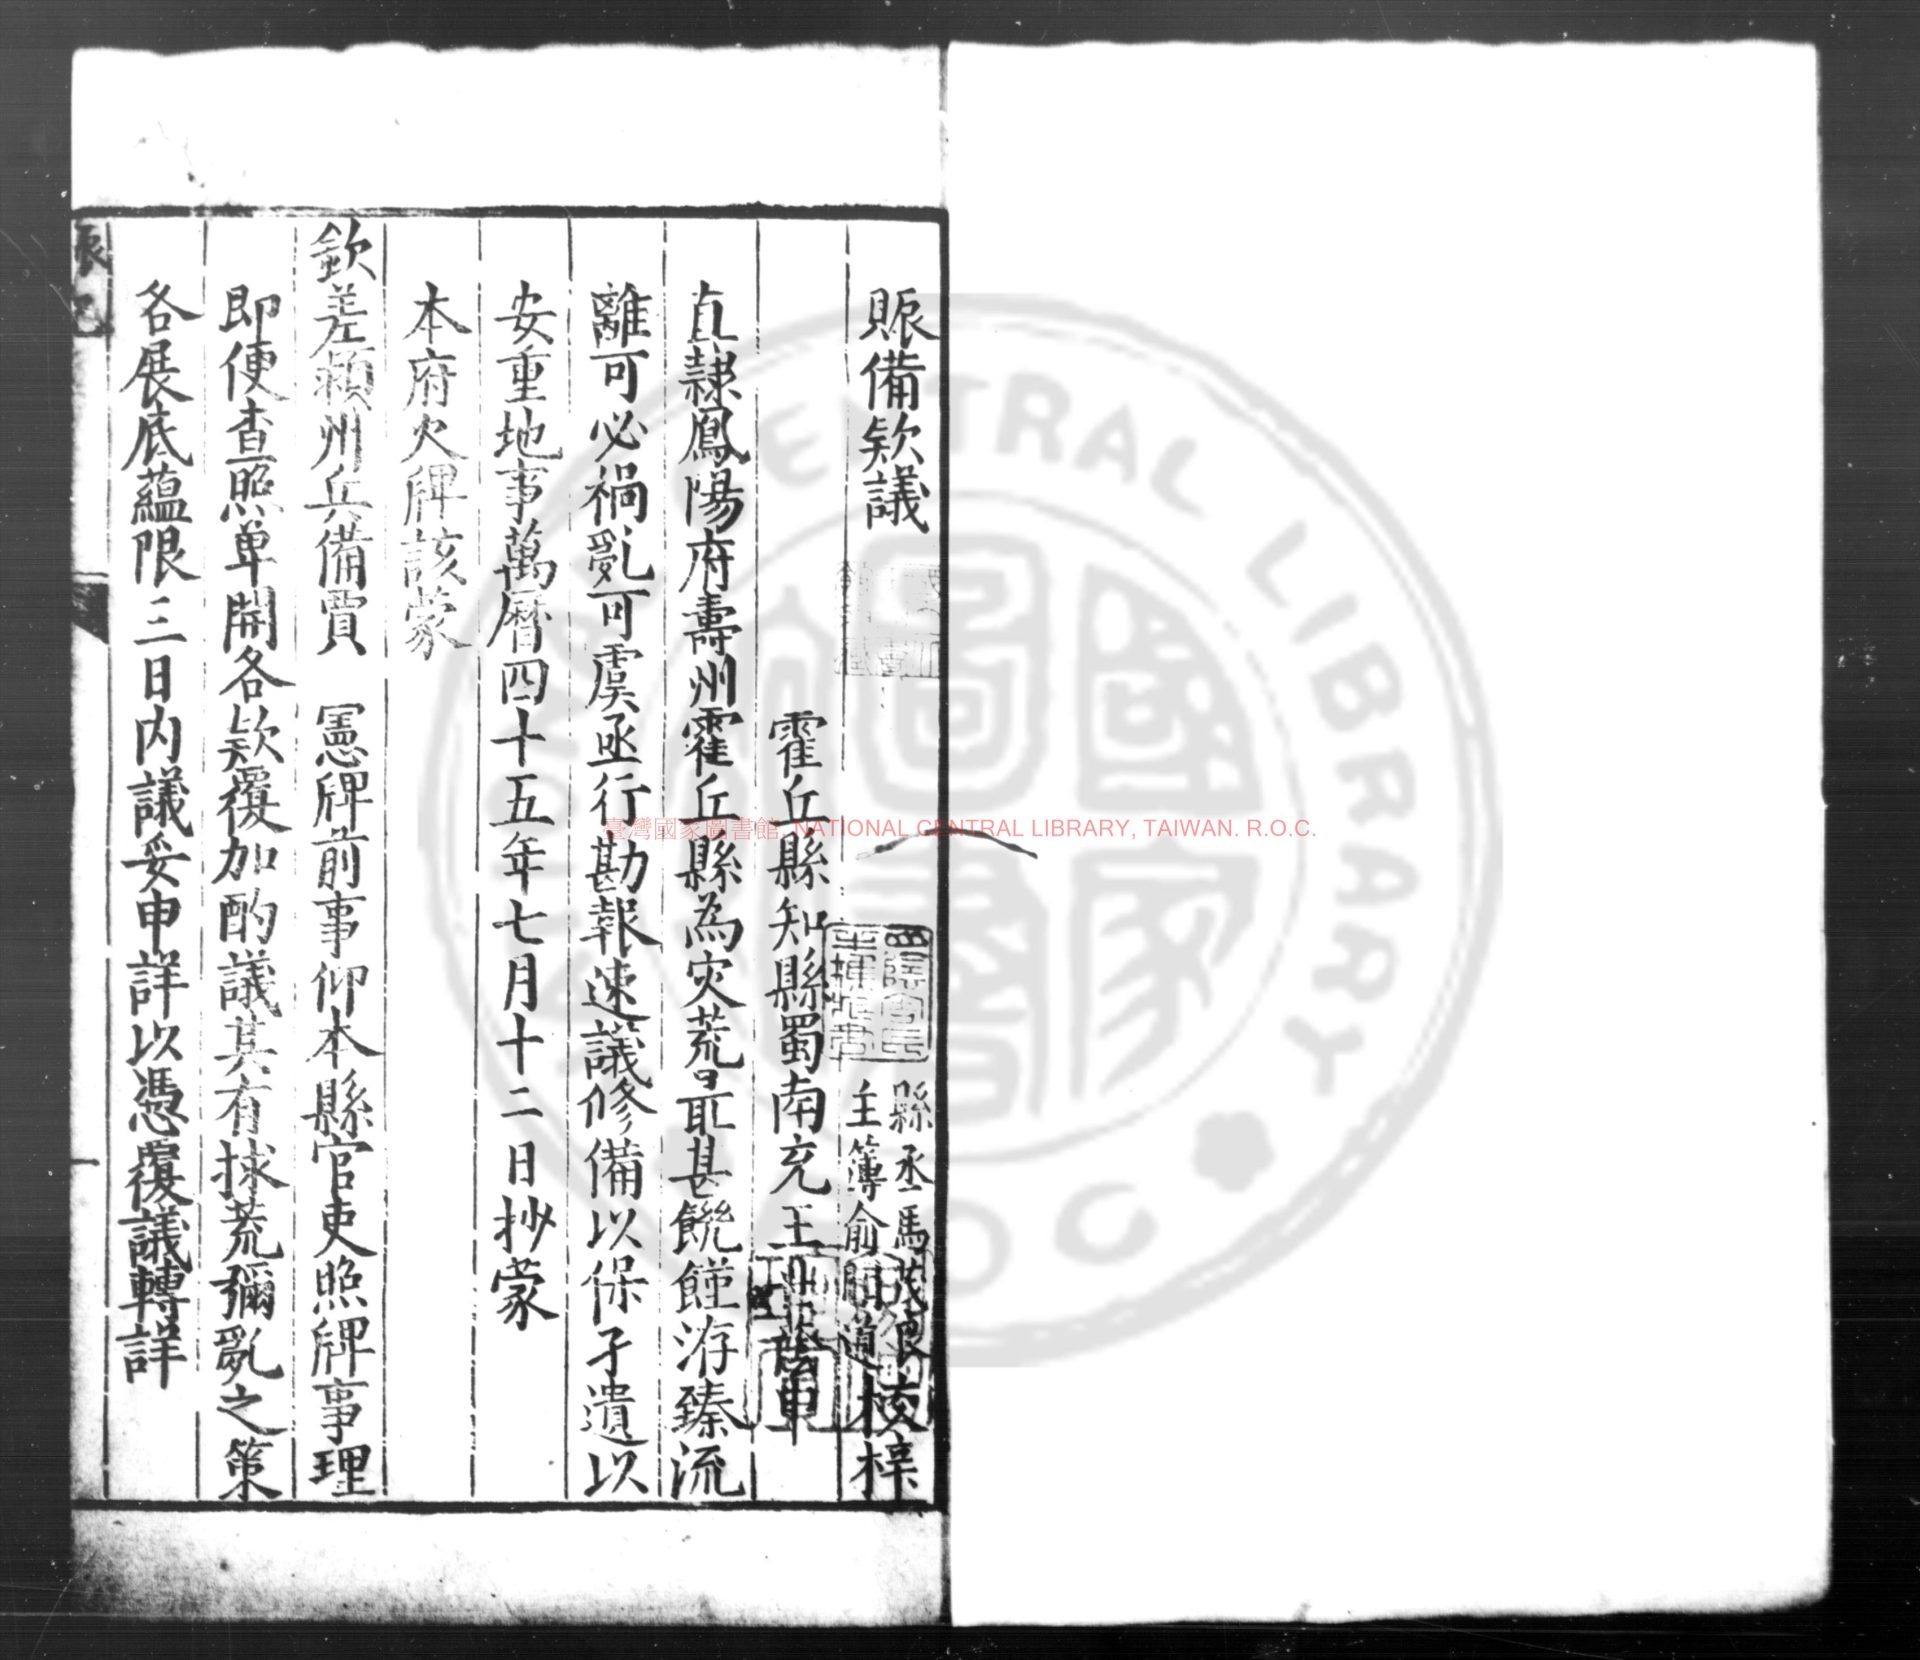 賑備欵議
縣丞馬茂良
主簿俞道
校梓
霍丘縣知縣蜀南充王
直隸鳳陽府壽州霍丘縣為灾荒最甚饑饉洊臻流
離可必禍亂可虞亟行勘報速議修備以保孑遺以
安重地事萬曆四十五年七月十二日抄蒙
本府火牌該蒙
欽差潁州兵備賈　憲牌前事仰本縣官吏照牌事理
即便查照单開各欵覆加酌議其有捄荒彌亂之策
各展底蘊限三日内議妥申詳以憑覆議轉詳
一
臺灣國家圖書館, NATIONAL CENTRAL LIBRARY, TAIWAN. R.O.C.
CENTRAL LIBRARY
國家圖書